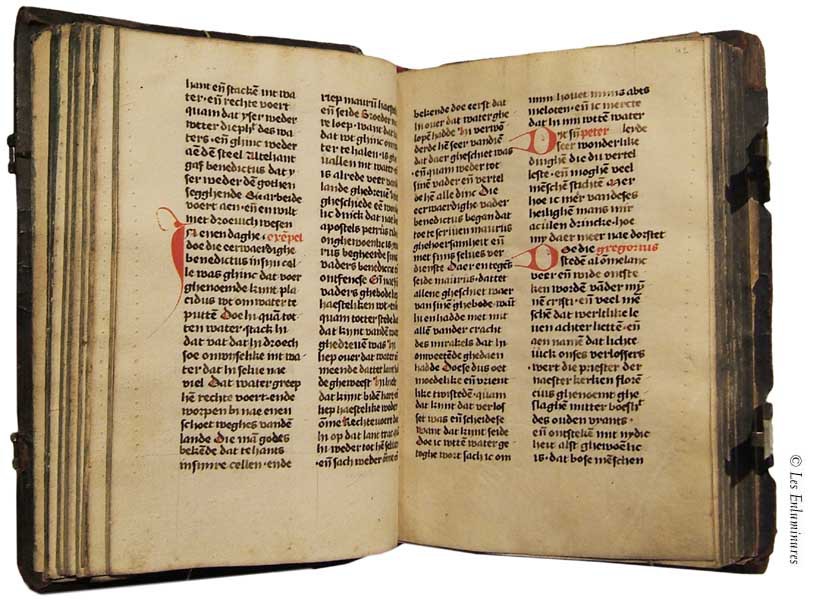 hant eñ stackē int wa
ter · eñ rechte voert
quam dat yser weder
wter dieph᷑ des wa
ters · eñ ghinc weder
aē dē steel Altehant
gaf benedictus dat y
ser weder dē gothen
segghende Su arbeide
voert aen · eñ en wilt
niet droevich wesen
In enen daghe · exēpel
doe die eerwaerdighe
benedictus in sijnre cel
le was ghinc dat voer
ghenoemde kint pla
cidus wt om water te
puttē Doe hi quā tot
ten water stack hi
dat vat dat hi droech
soe onwijselike int wa
ter dat hi selve nae
viel Dat water greep
hē rechte voert · ende
worpen bi nae enen
schoet weghes vandē
lande Die mā godes
bekēde dat tehants
in sijnre cellen · ende
riep maurū haestel
eñ seide Broeder ma
re loep · want dat
dat wt ghinc om
ter te halen · is ghe
vallen int water
is alrede veer vandē
lande ghedreven
gheschiede eē won
lic dinck dat nae
apostels petrus tij
onghewoenlic is
rus begheerde sijns
vaders benedictie
ontfense Eñ nae
vaders ghebode
haestelikē wt · eñ
quam totter stede daer
dat kint vandē wa
ghedrevē was Hi
liep over dat water
meende datter lant
de gheweest Hi haelde
dat kint biden hare
liep haestelike weder
ōme Rechte voert
hi op dat lant trat
hi weder tot hē selven
· eñ sach weder ōme eñ
bekende doe eerst dat
hi over dat water ghe
lopē hadde Hi verwō
derde hē seer van diē
dat daer gheschiet was
· eñ quam weder tot
sinē vader eñ vertel
de hē alle dinc Die
eerwaerdighe vader
benedictus began dat
toe te scriven maurus
ghehoersamheit eñ
niet sijns selves ver
dienste Daer en tegēs
seide maurus · dattet
allene gheschiet waer
van sinē ghebode · wāt
hi en hadde niet mit
allē vander cracht
des mirakels dat hi
onweetēde ghedaen
hadde Doe se dus oet
moedelike eñ vrient
like twistedē · quam
dat kint dat verlos
set was eñ scheidede
Want dat kint seide
Doe ic wtē water ge
toghe wort sach ic om
mijn hovet mijns abts
meloten · eñ ic mercte
dat hi mi wttē water
Dyt sijn peter leerde
seer wonderlike
dinghē die du vertel
leste · eñ moghē veel
mēschē stichtē Mer
hoe ic meer van deses
heilighē mans mir
aculen drincke · hoe
my daer meer nae dorstet
Doe die gregorius
stedē al omelanc
veer eñ wide ontste
ken wordē vander mȳ
nē cristi · eñ veel mē
schē dat werltlike le
ven achter lietē · eñ
aen namē dat lichte
iuck onses verlossers
· wert die priester der
naester kerken floren
cius ghenoemt ghe
slaghē mitter boesh᷑
des ouden vyants ·
eñ ontstekē mit nydic
heit alst ghewoēlic
is · dat bose mēschen
© Les Enluminures